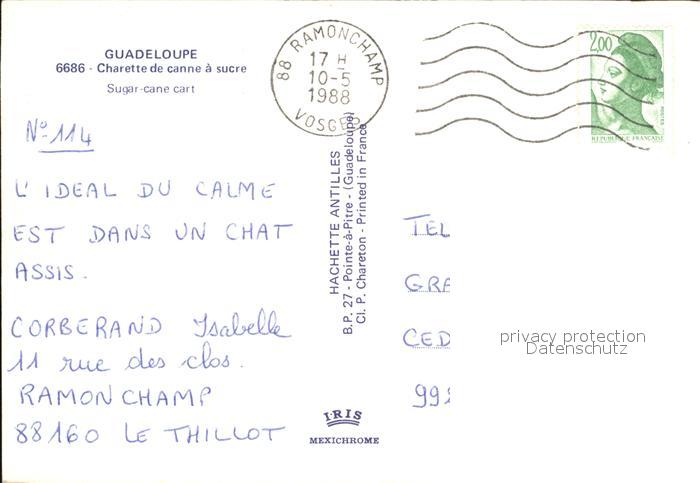 GUADELOUPE
6686 - Charette de canne à sucre
Sugar-cane cart
N° 114
L'IDEAL DU CALME
EST DANS UN CHAT
ASSIS.
CORBERAND Isabelle
11 rue des clos.
RAMONCHAMP
88160 LE THILLOT
HACHETTE ANTILLES
B.P. 27 - Pointe-à-Pitre - (Guadeloupe)
Cl. P. Chareton - Printed in France
IRIS
MEXICHROME
88 RAMONCHAMP
17 H
10-5
1988
VOSGES
2,00
POSTES
REPUBLIQUE FRANÇAISE
TEL
GRA
CED
99
privacy protection
Datenschutz